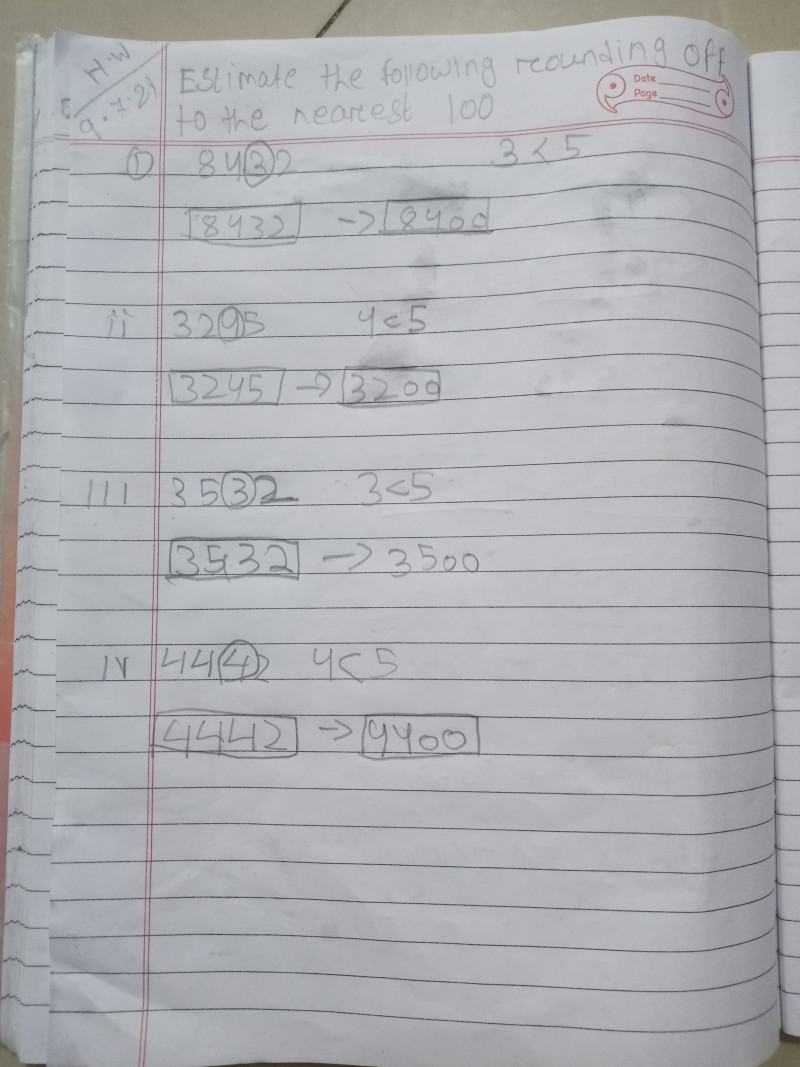 H.W
9.7.21
Estimate the following reounding off
to the nearest 100
Date
Page
① 8432 3 < 5
8432 → 8400
ii 3295 4<5
3245 → 3200
III 3532 3<5
3532 → 3500
IV 4442 4<5
4442 → 4400